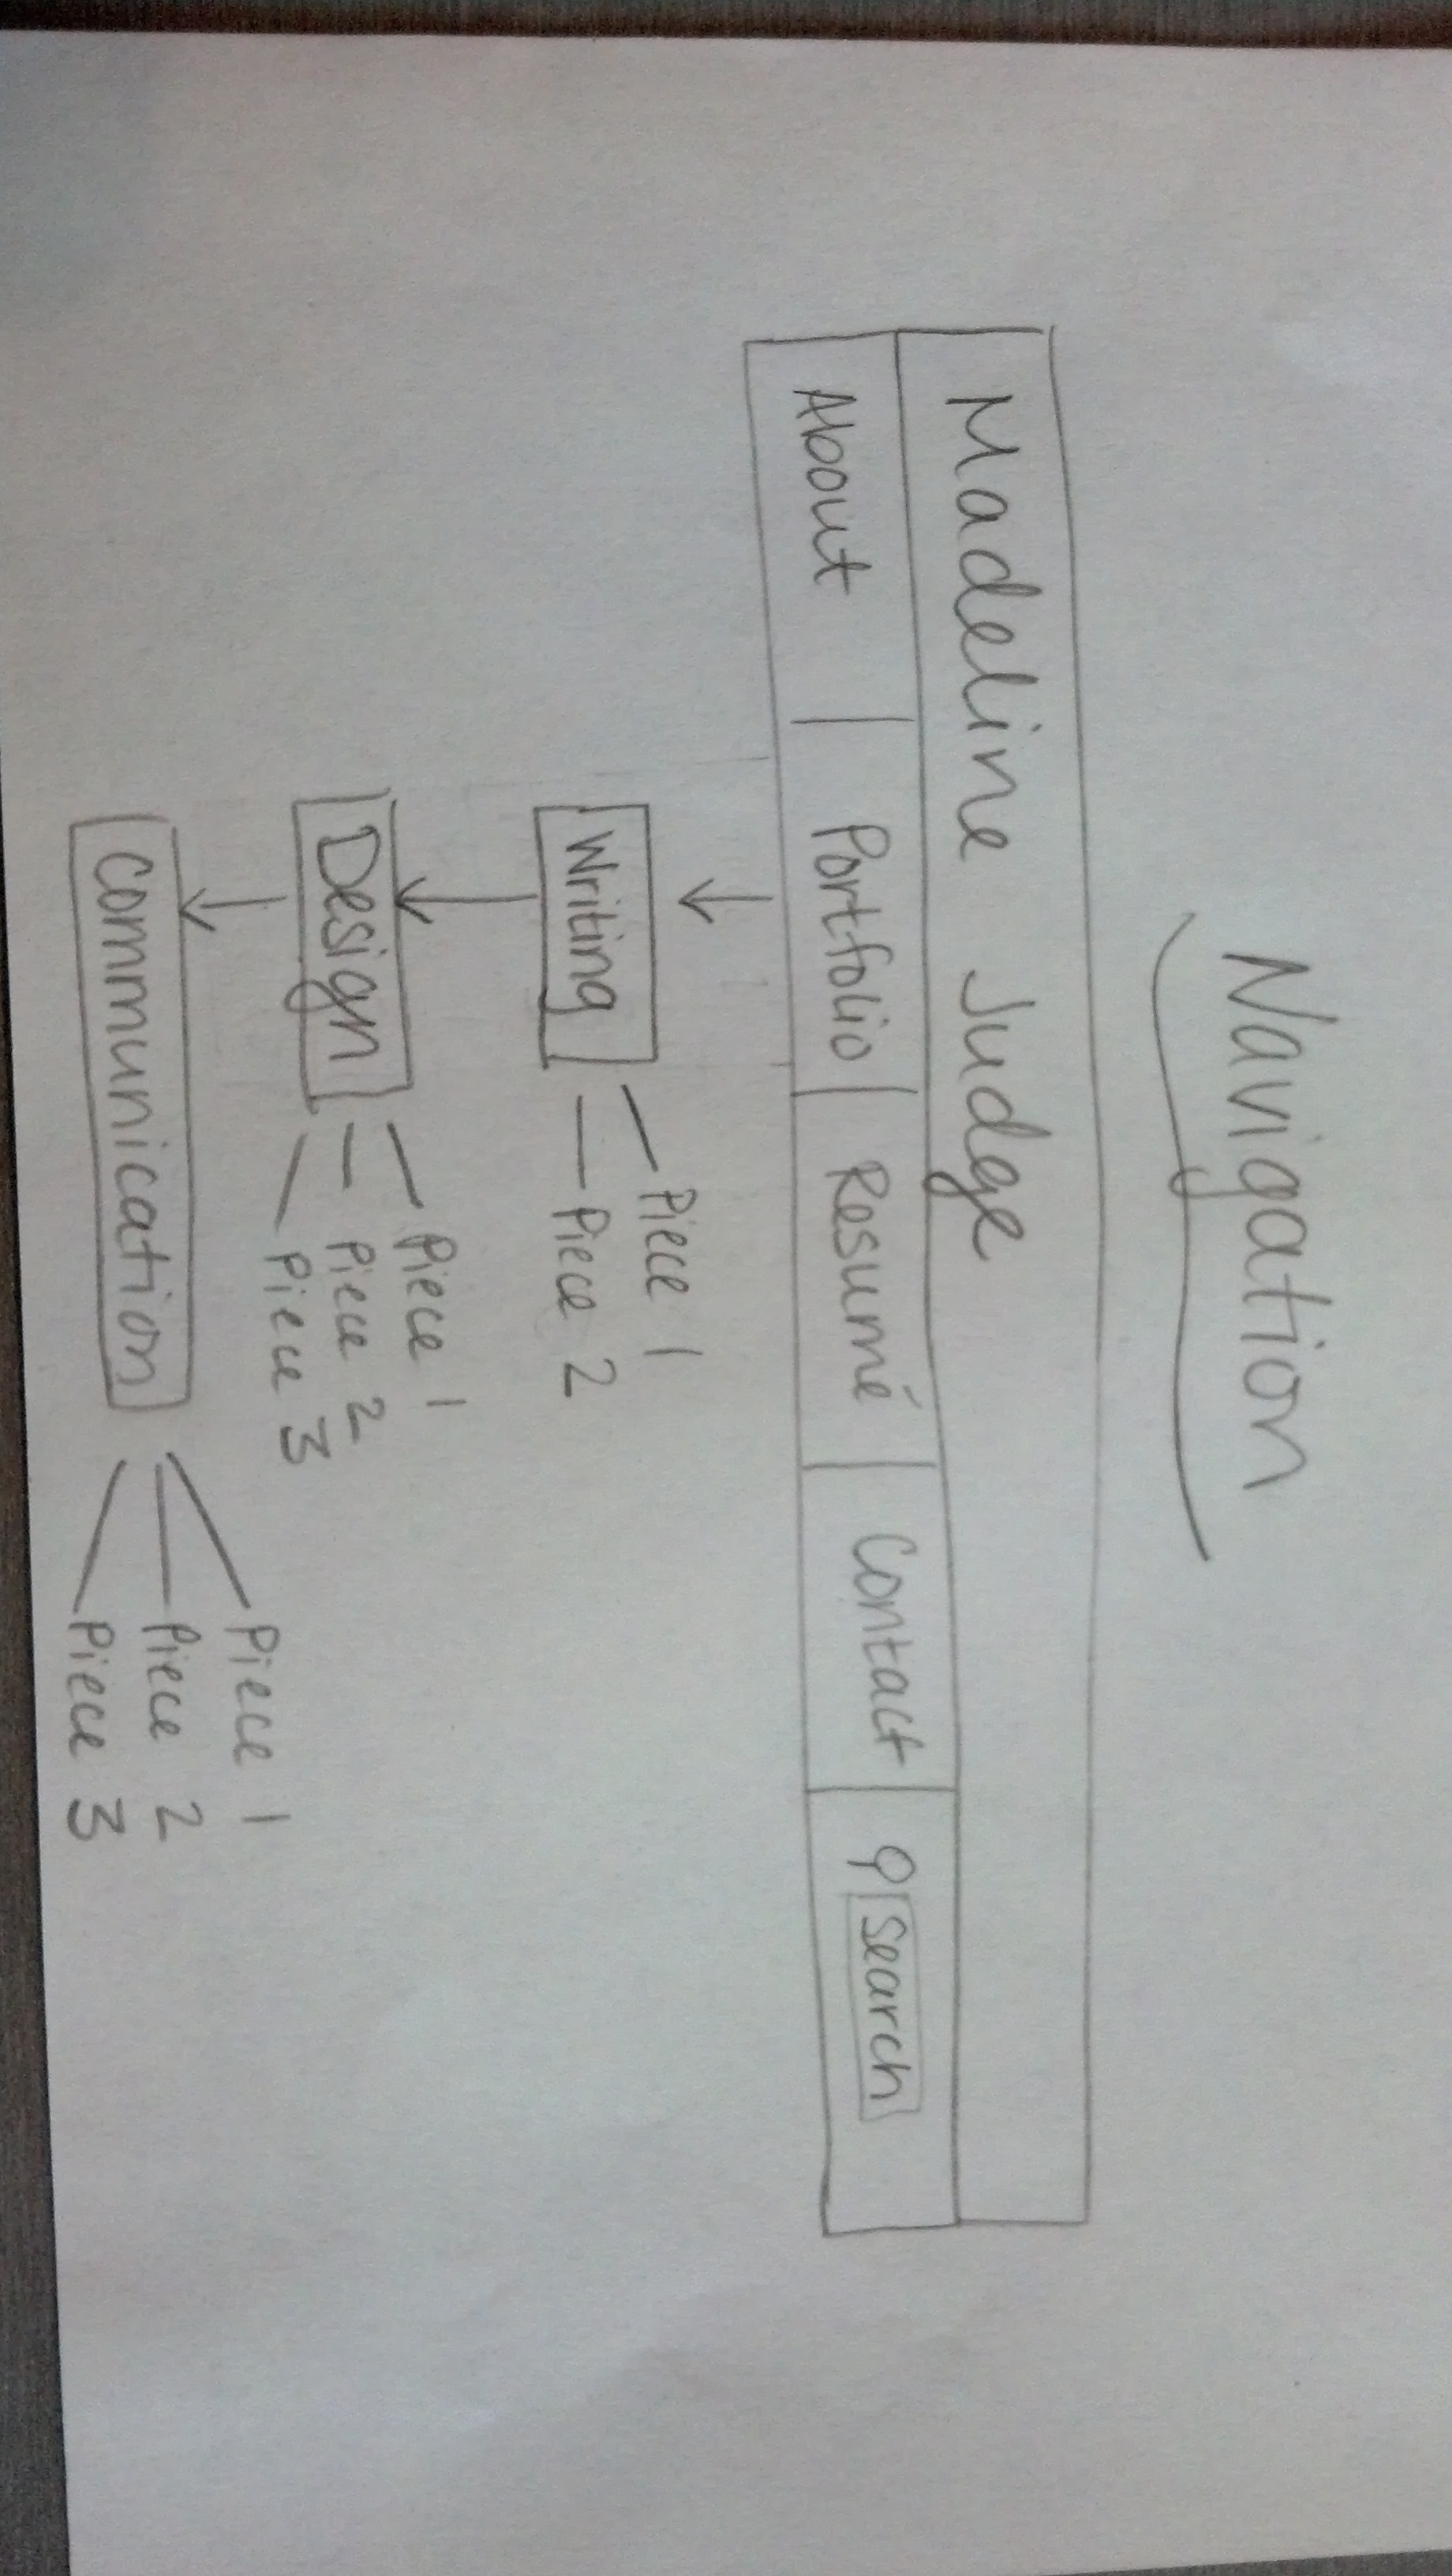 Navigation
Madeline Judge
About Portfolio Resumé Contact Search
Writing
Piece 1
Piece 2
Design
Piece 1
Piece 2
Piece 3
Communication
Piece 1
Piece 2
Piece 3